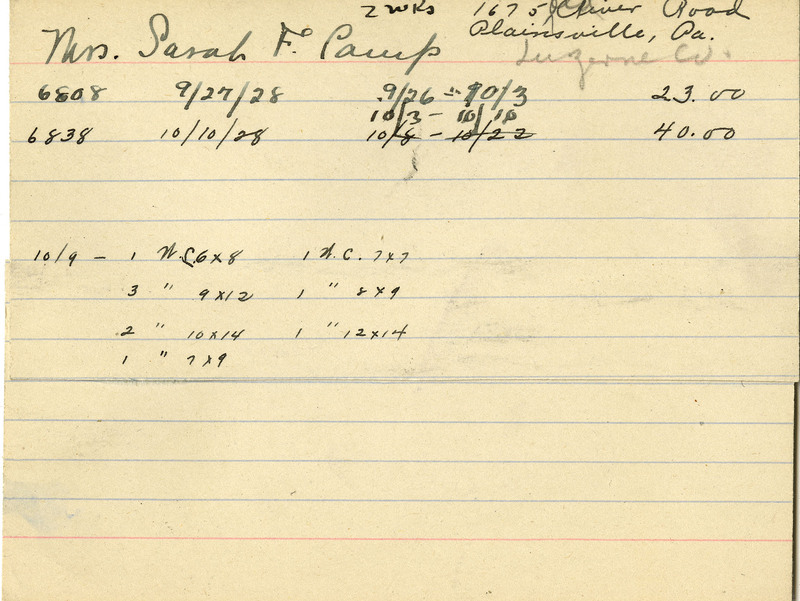 2 wks 1675 River Road
Plainsville, Pa.
Mrs. Sarah F. Camp Luzerne Co.
6808 9/27/28 9/26 - 10/3 23.00
10/3 - 10/10
6838 10/10/28 10/8 - 10/22 40.00
10/9 - 1 W.C. 6x8 1 W.C. 7x7
3 " 9x12 1 " 8x9
2 " 10x14 1 " 12x14
1 " 7x9